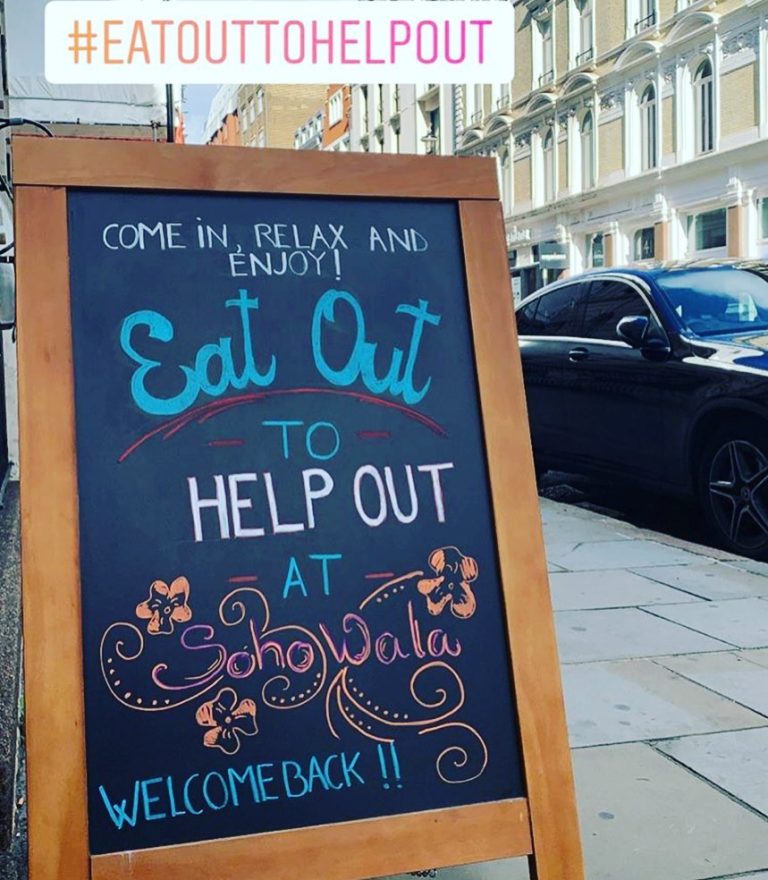 #EATOUTTOHELPOUT
COME IN, RELAX AND
ENJOY!
Eat Out
- TO -
HELP OUT
- AT -
SohoWala
WELCOME BACK !!